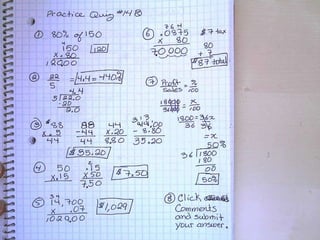 Practice Quiz #14B
① 80% of 150
150
x .80
12000
120
② 22/5 = 4.4 = 440%
4.4
5)22.0
-20
2.0
③ $88 88 44 44.00
x .5 -44 x.20 - 8.80
44 44 880 35.20
$35.20
④ 50 .15
x.15 x50
7.50
$7.50
⑤ 14,700
x .07
1029.00
$1,029
⑥ .0875
x 80
7.0000
$7 tax
80
+ 7
$87 total
⑦ Profit/Sales = x/100
= x/100
1800=36x
36 36
= x
50%
36)1800
180
00
50%
⑧ Click
Comments
and submit
your answer.